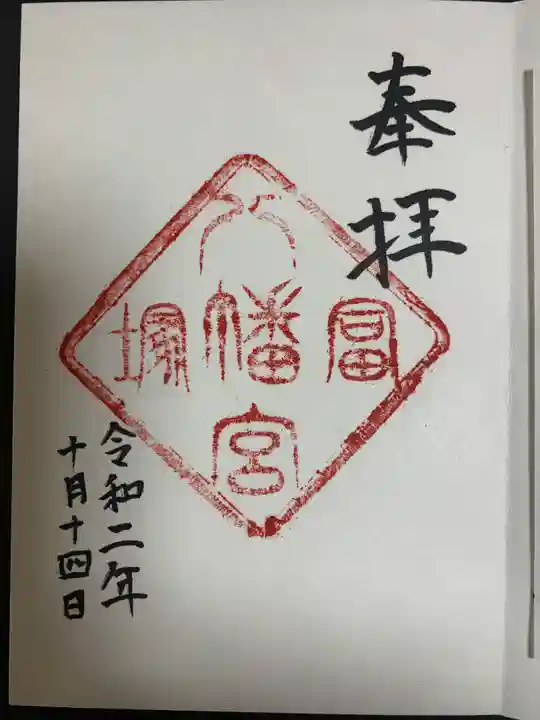 奉拝
富塚
八幡宮
令和二年
十月十四日